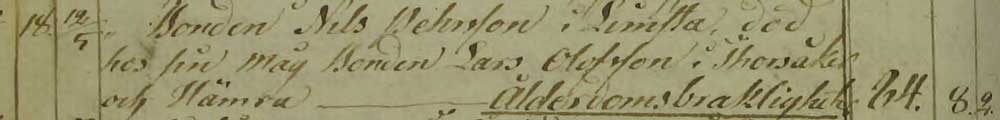 18. 12/5. Bonden Nils Pehrsson i Limsta, död
hos sin Måg Bonden Lars Olofsson i Thorsåker
och Hämra — Ålderdomsbräklighet. 84. 8. 2.